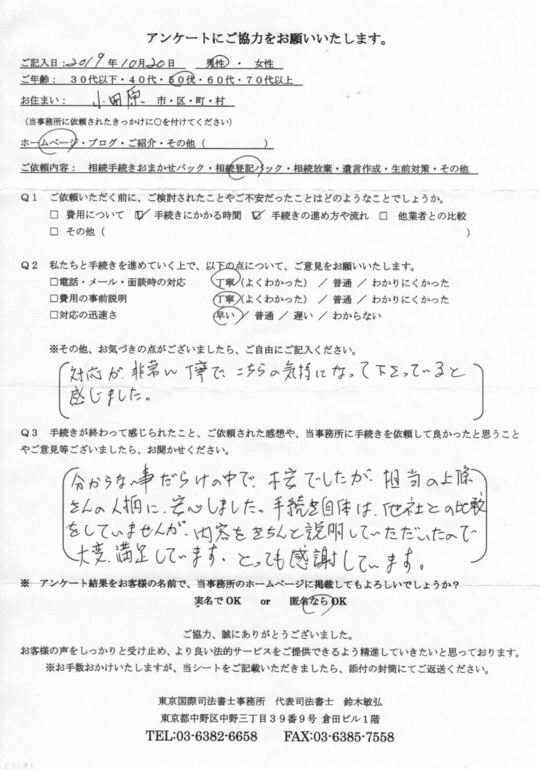 アンケートにご協力をお願いいたします。
ご記入日：2019年10月20日　男性・女性
ご年齢：30代以下・40代・50代・60代・70代以上
お住まい：小田原 市・区・町・村
（当事務所に依頼されたきっかけに○を付けてください）
ホームページ・ブログ・ご紹介・その他（　　　　）
ご依頼内容：相続手続きおまかせパック・相続登記パック・相続放棄・遺言作成・生前対策・その他
Q1　ご依頼いただく前に、ご検討されたことやご不安だったことはどのようなことでしょうか。
□ 費用について ☑ 手続きにかかる時間 ☑ 手続きの進め方や流れ □ 他業者との比較
□ その他（　　　　）
Q2　私たちと手続きを進めていく上で、以下の点について、ご意見をお願いいたします。
□電話・メール・面談時の対応　丁寧（よくわかった）／普通／わかりにくかった
□費用の事前説明　丁寧（よくわかった）／普通／わかりにくかった
□対応の迅速さ　早い／普通／遅い／わからない
※その他、お気づきの点がございましたら、ご自由にご記入ください。
対応が、非常に丁寧で、こちらの気持になって下さっていると
感じました。
Q3　手続きが終わって感じられたこと、ご依頼された感想や、当事務所に手続きを依頼して良かったと思うこと
やご意見等ございましたら、お聞かせください。
分からない事だらけの中で、不安でしたが、担当の上條
さんの人柄に、安心しました。手続き自体は、他社との比較
をしていませんが、内容をきちんと説明していただいたので
大変、満足しています、とっても感謝しています。
※ アンケート結果をお客様の名前で、当事務所のホームページに掲載してもよろしいでしょうか？
実名でOK　or　匿名ならOK
ご協力、誠にありがとうございました。
お客様の声をしっかりと受け止め、より良い法的サービスをご提供できるよう精進していきたいと思っております。
※お手数おかけいたしますが、当シートをご記載いただきましたら、添付の封筒にてご返送ください。
東京国際司法書士事務所　代表司法書士　鈴木敏弘
東京都中野区中野三丁目39番9号 倉田ビル1階
TEL:03-6382-6658　FAX:03-6385-7558